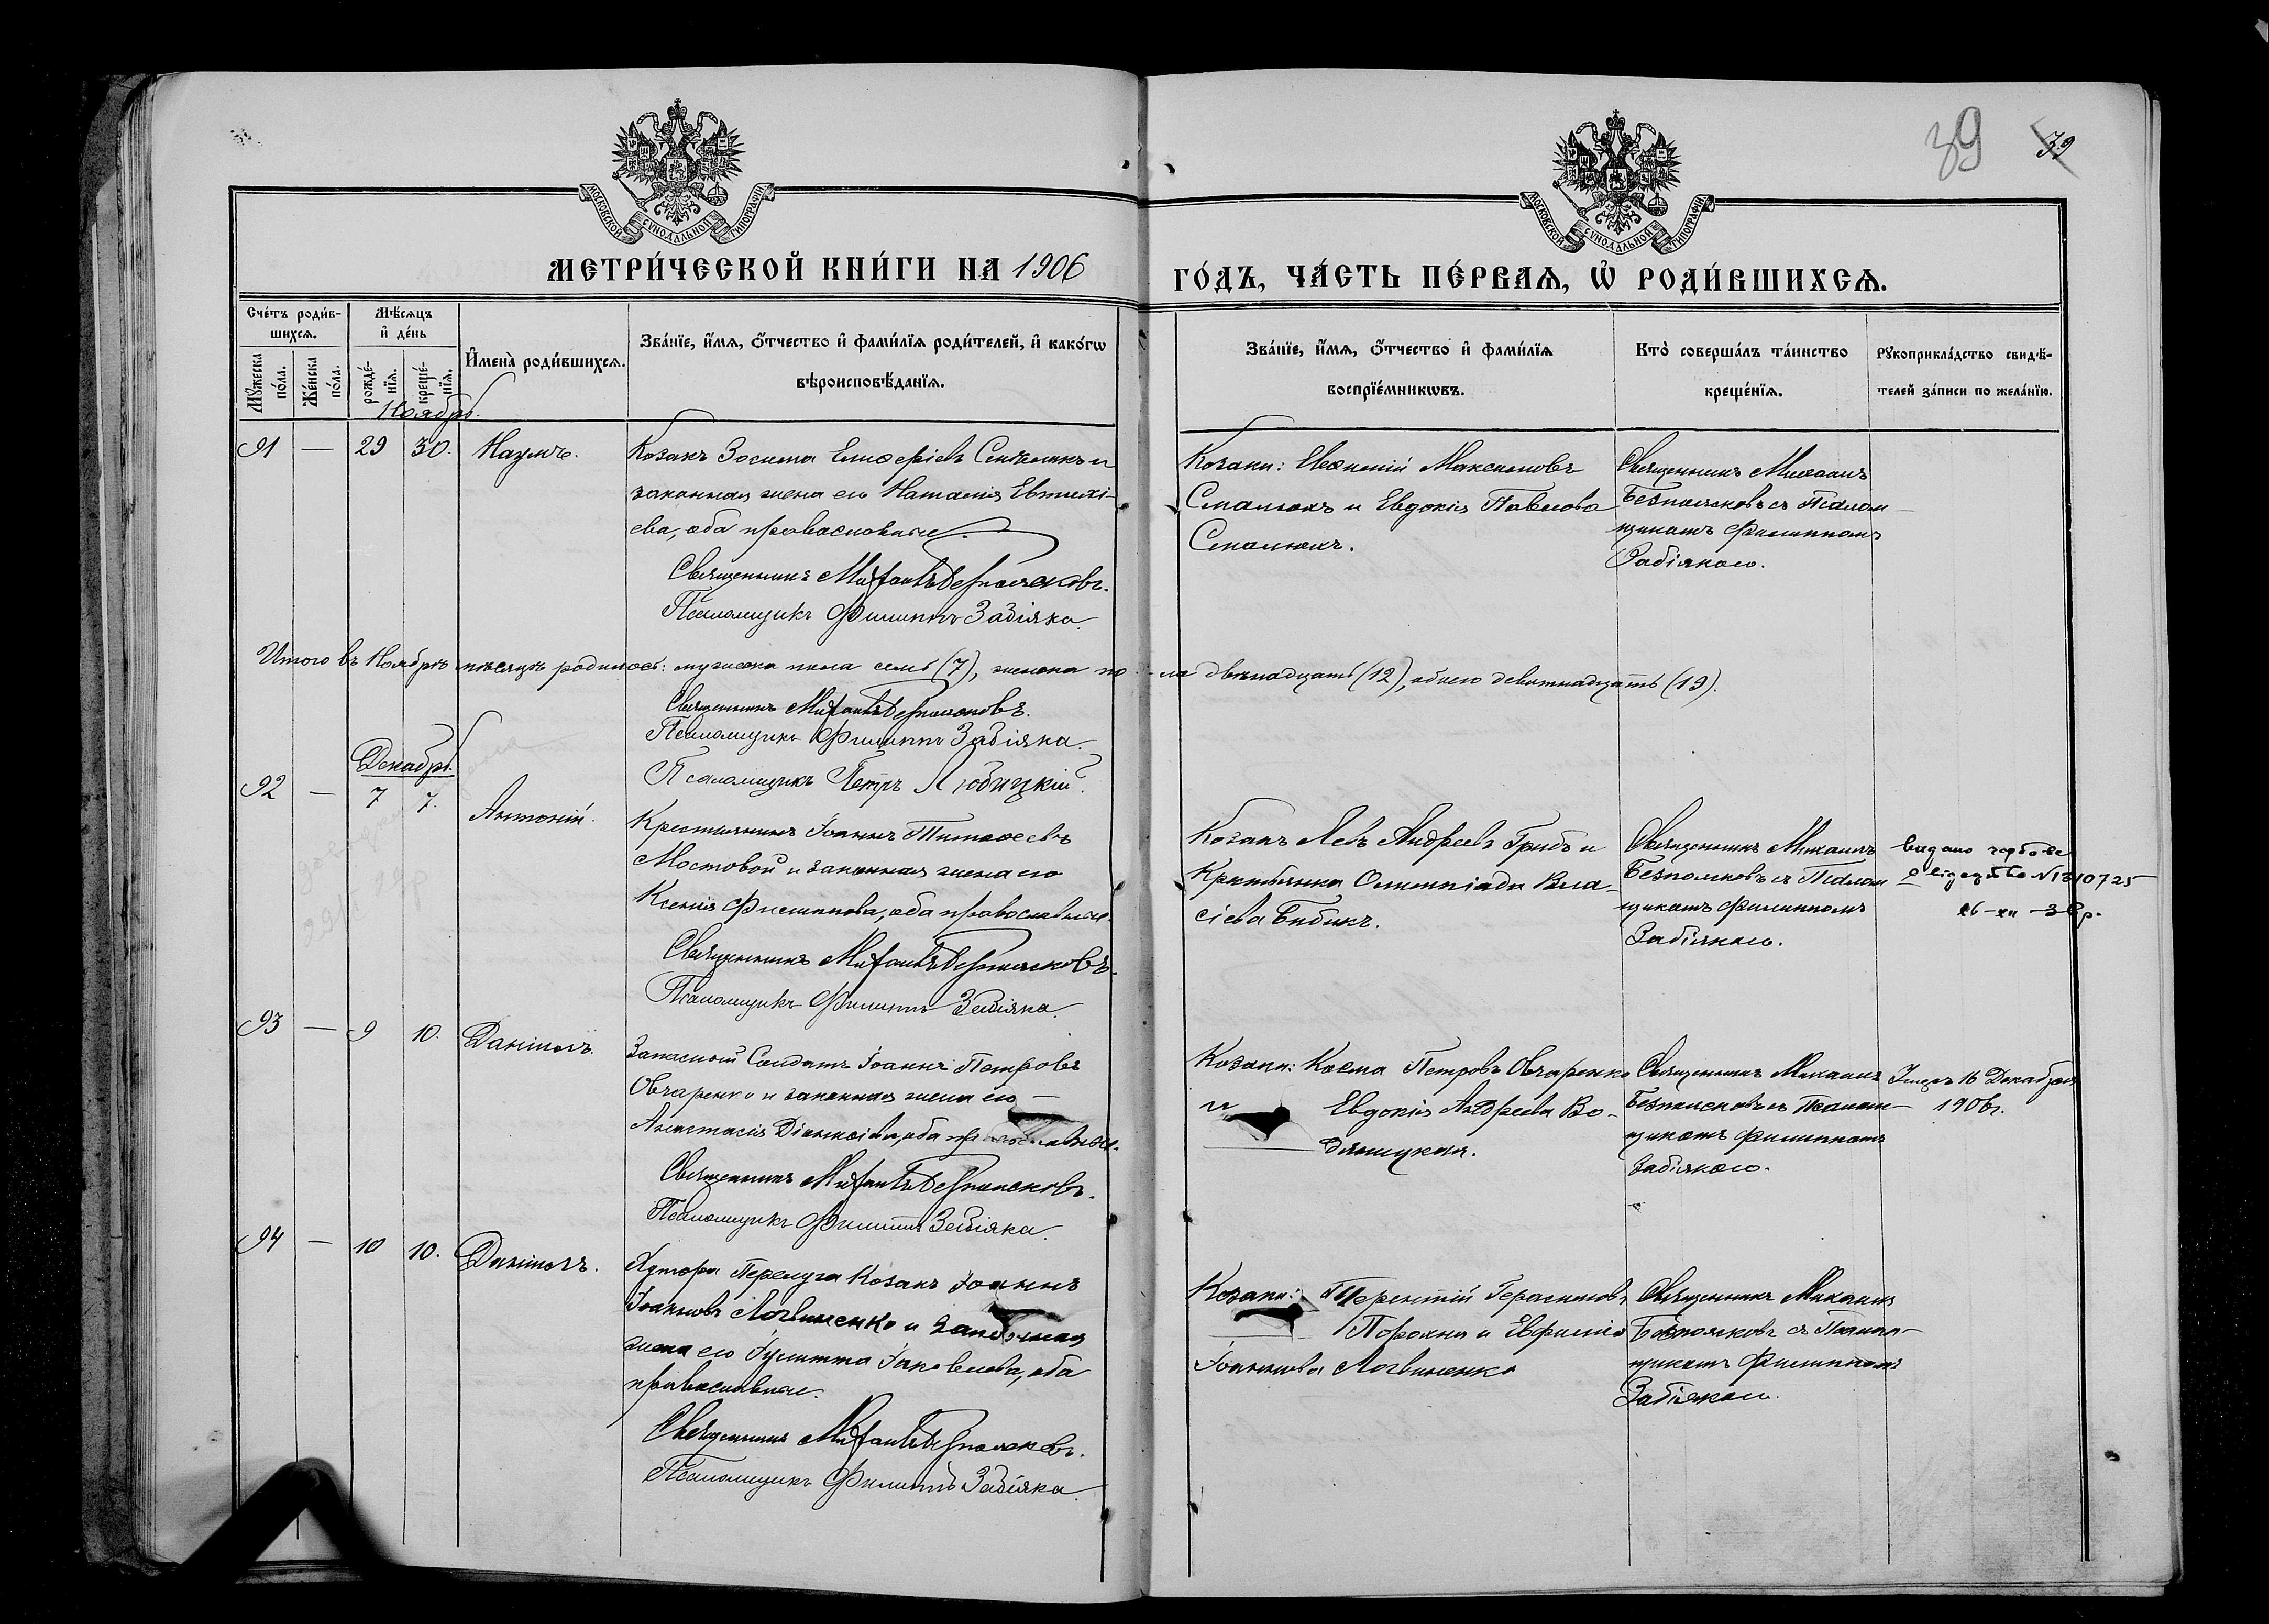 39
39
МОСКОВСКОЙ СѴНОДАЛЬНОЙ ТИПОГРАФІИ
МОСКОВСКОЙ СѴНОДАЛЬНОЙ ТИПОГРАФІИ
МЕТРИ́ЧЕСКОЙ КНИ́ГИ НА 1906
ГО́ДЪ, ЧА́СТЬ ПЕ́РВАѦ, Ѡ҆ РОДИ́ВШИХСѦ.
Сче́тъ роди́в-
шихсѧ.
Мѣ́сѧцъ
и҆ де́нь
Мꙋ́жеска
по́ла.
Же́нска
по́ла.
рожде́-
нїѧ.
креще́-
нїѧ.
И҆мена̀ роди́вшихсѧ.
Зва́нїе, и҆́мѧ, ѻ҆́тчество и҆ фами́лїѧ роди́телей, и҆ како́гѡ
вѣроисповѣ́данїѧ.
Зва́нїе, и҆́мѧ, ѻ҆́тчество и҆ фами́лїѧ
воспрїе́мникѡвъ.
Кто̀ соверша́лъ та́инство
креще́нїѧ.
Рꙋкоприкла́дство свидѣ́-
телей за́писи по жела́нїю.
Ноябрь.
91 — 29 30. Наумъ.
Козакъ Зосима Елисеріевъ и
законная жена его Наталія Евтихі-
ева, оба православные.
Священникъ Михаилъ Безпалчсковъ.
Псаломщикъ Филиппъ Забіяка.
Козаки: Евѳимій Максимовъ
Смалюкъ и Евдокія Павлова
Смалюкъ.
Священникъ Михаилъ
съ Псалом-
щикомъ Филиппомъ
Забіякою.
Итого въ Ноябрѣ мѣсяцѣ родилось: мужеска пола семь (7), женска по-ла двѣнадцать (12), обоего девятнадцать (19).
Священникъ Михаилъ
Псаломщикъ Филиппъ Забіяка.
Псаломщикъ Петръ Любицкій.
Декабрь.
92 — 7 7. Антоній.
Крестьянинъ Іоаннъ Тимоѳеевъ
Мостовой и законная жена его
Ксенія Филиппова, оба православные.
Священникъ Михаилъ
Псаломщикъ Филиппъ Забіяка.
Козакъ Левъ Андреевъ Грибъ и
Крестьянка Олимпіада Вла-
сіева Бибикъ.
Священникъ Михаилъ
съ Псалом-
щикомъ Филиппомъ
Забіякою.
видано
№ 1310725
93 — 9 10. Даніилъ.
Запасной Солдатъ Іоаннъ Петровъ
Овчаренко и законная жена его —
Анастасія Діонисіева, оба православные.
Священникъ Михаилъ
Псаломщикъ Филиппъ Забіяка.
Козаки: Косма Петровъ Овчаренко
и Евдокія Андреева Во-
дяницкая.
Священникъ Михаилъ
съ Псалом-
щикомъ Филиппомъ
Забіякою.
Умеръ 16 Декабря
1906 г.
94 — 10 10. Даніилъ.
Хутора Перелуга Козакъ Іоаннъ
Іоанновъ Логвиненко и законная
жена его Іулитта Іаковлева, оба
православные.
Священникъ Михаилъ
Псаломщикъ Филиппъ Забіяка.
Козаки: Терентій Герасимовъ
Порохня и Евфимія
Іоаннова Логвиненко
Священникъ Михаилъ
съ Псалом-
щикомъ Филиппомъ
Забіякою.